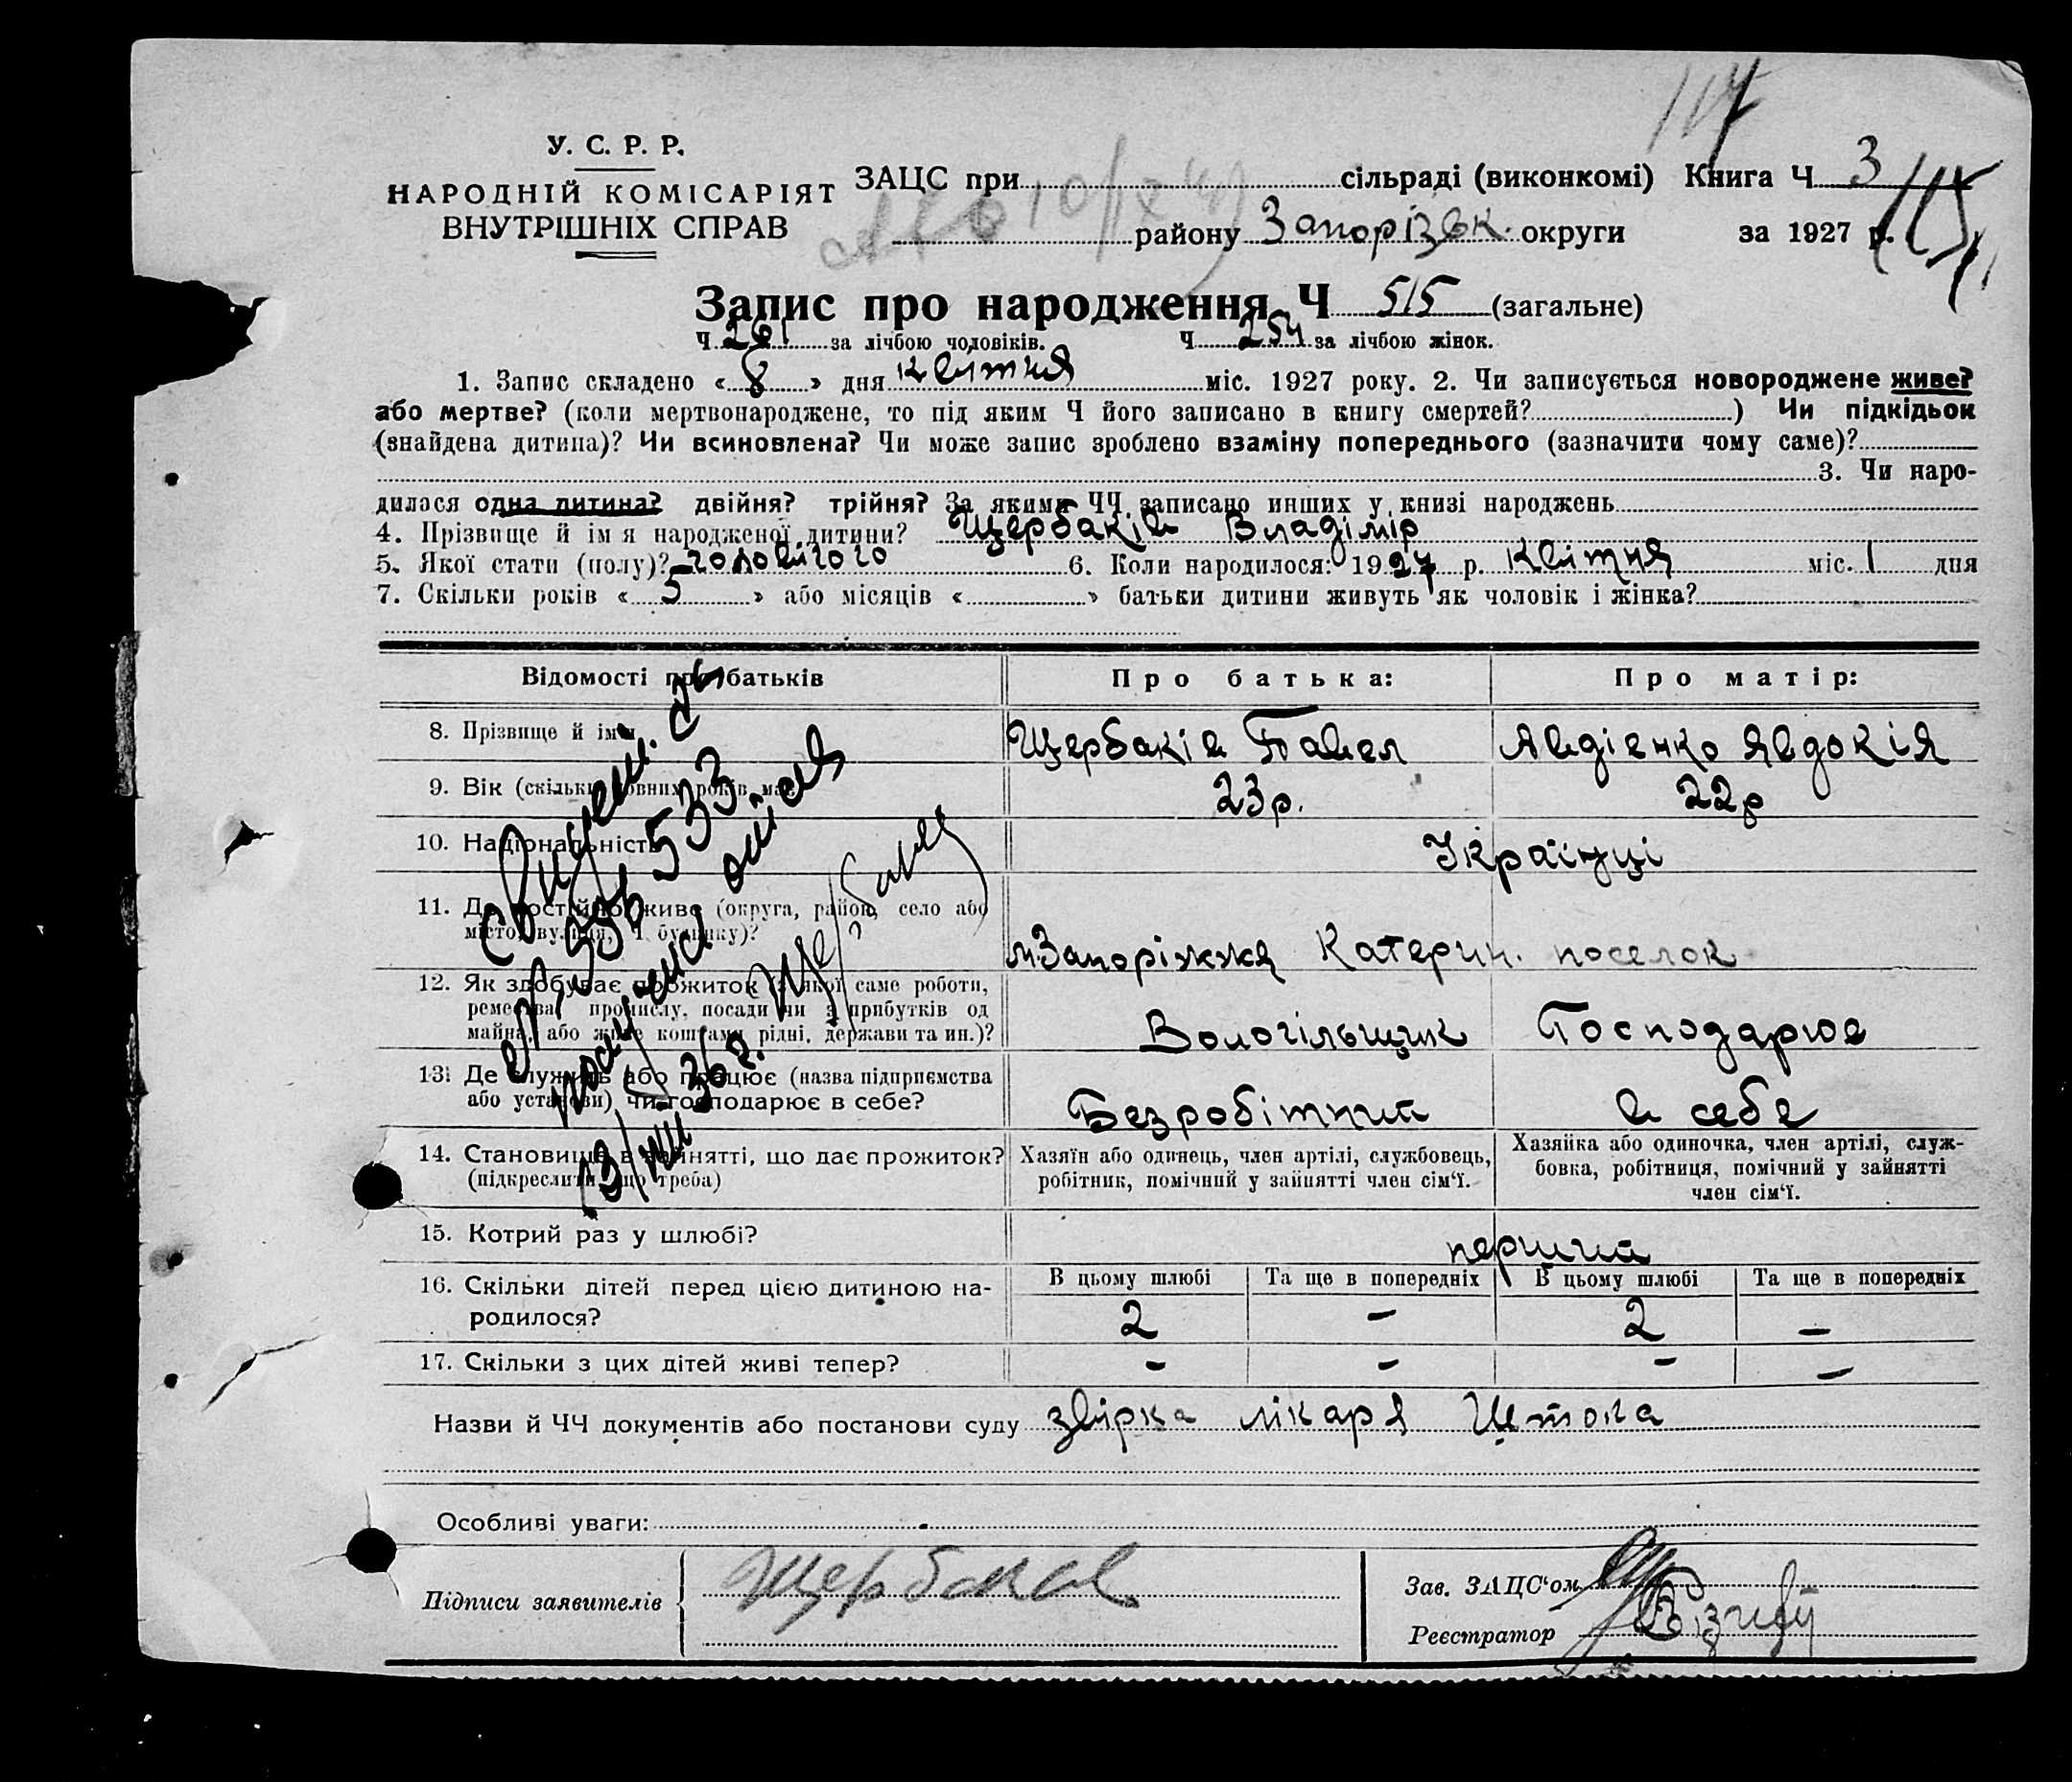 117
У. С. Р. Р.
НАРОДНІЙ КОМІСАРІЯТ
ВНУТРІШНІХ СПРАВ
ЗАЦС при сільраді (виконкомі) Книга Ч 3
району Запорізьк. округи за 1927 р. 115
Запис про народження Ч 515 (загальне)
Ч 261 за лічбою чоловіків. Ч 254 за лічбою жінок.
1. Запис складено « 8 » дня квітня міс. 1927 року. 2. Чи записується новороджене живе?
або мертве? (коли мертвонароджене, то під яким Ч його записано в книгу смертей? ) Чи підкідьок
(знайдена дитина)? Чи всиновлена? Чи може запис зроблено взаміну попереднього (зазначити чому саме)?
3. Чи наро-
дилася одна дитина? двійня? трійня? За якими ЧЧ записано инших у книзі народжень
4. Прізвище й ім'я народженої дитини? Щербаків Владімір
5. Якої стати (полу)? чоловічого 6. Коли народилося: 1927 р. квітня міс. 1 дня
7. Скільки років « 5 » або місяців « » батьки дитини живуть як чоловік і жінка?
Відомості про батьків Про батька: Про матір:
8. Прізвище й ім'я Щербаків Павел Авдієнко Явдокія
9. Вік (скільки повних років має) 23р. 22р
10. Національність Українці
11. Де постійно живе (округа, район, село або
місто, вулиця, Ч будинку)?
м.Запоріжжя Катерин. поселок
12. Як здобуває прожиток (з якої саме роботи,
ремества, промислу, посади чи з прибутків од
майна, або живе коштами рідні, держави та ин.)?
Вологільщик Господарює
13. Де служить або працює (назва підприємства
або установи) чи господарює в себе?
Безробітний в себе
14. Становище в занятті, що дає прожиток?
(підкреслити, що треба)
Хазяїн або одинець, член артілі, службовець,
робітник, помічний у зайнятті член сім‘ї.
Хазяйка або одиночка, член артілі, служ-
бовка, робітниця, помічний у зайнятті
член сім‘ї.
15. Котрий раз у шлюбі? перший
16. Скільки дітей перед цією дитиною на-
родилося?
В цьому шлюбі Та ще в попередніх В цьому шлюбі Та ще в попередніх
2 – 2 –
17. Скільки з цих дітей живі тепер? – – – –
Назви й ЧЧ документів або постанови суду звірка лікаря
Особливі уваги:
Підписи заявителів Щербаков
Зав. ЗАЦС‘ом
Реєстратор
533
13/VIII 36 г.